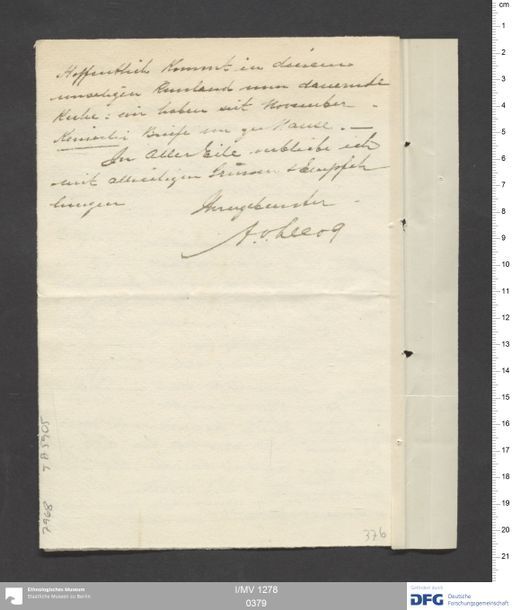 Hoffentlich kommt in diesem
unseligen Russland nun dauernde
Ruhe: wir haben seit November
Keinerlei Briefe von zu Hause. —
In aller Eile verbleibe ich
mit allseitigen Grüssen & Empfeh
lungen
Ihr ergebenster
A. v. Le Coq
7968 TA 5905
376
cm
1
2
3
4
5
6
7
8
9
10
11
12
13
14
15
16
17
18
19
20
21
Ethnologisches Museum
Staatliche Museen zu Berlin
I/MV 1278
0379
Gefördert durch
DFG Deutsche
Forschungsgemeinschaft